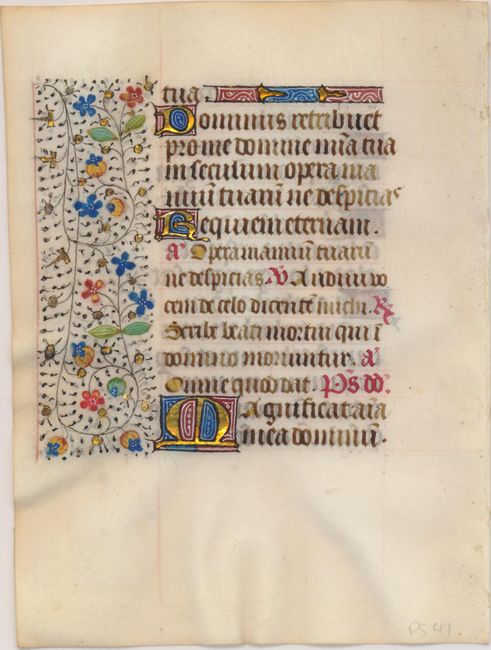 tua.
Dominus retribuet
pro me domine mīa tua
in seculum opera ma
nuū tuarū ne despicias
Requiem eternam.
a Opera manuū tuarū
ne despicias. V Audiui vo
cem de celo dicentē michi. R
Scribe beati mortui qui ī
domino moriuntur. a
Omne quod dat. Ps dd.
Magnificat aīa
mea dominū.
PS 41